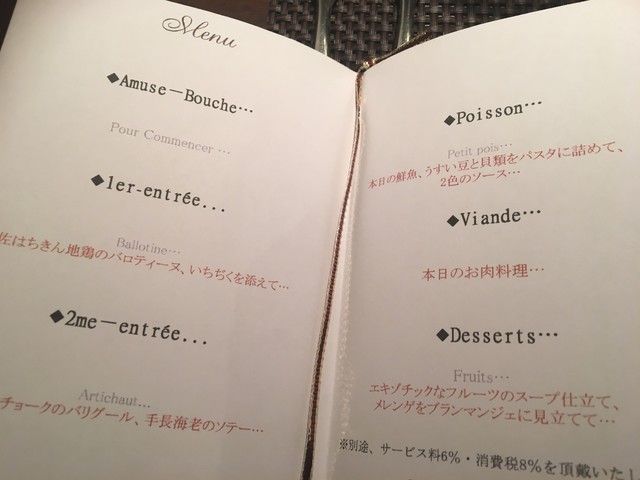 Menu
◆Amuse－Bouche…
Pour Commencer …
◆1er-entrée...
Ballotine…
佐はちきん地鶏のバロティーヌ、いちぢくを添えて…
◆2me－entrée...
Artichaut…
チョークのバリグール、手長海老のソテー…
◆Poisson…
Petit pois…
本日の鮮魚、うすい豆と貝類をパスタに詰めて、
2色のソース…
◆Viande…
本日のお肉料理…
◆Desserts…
Fruits…
エキゾチックなフルーツのスープ仕立て、
メレンゲをブランマンジェに見立てて…
※別途、サービス料6%・消費税8%を頂戴いた